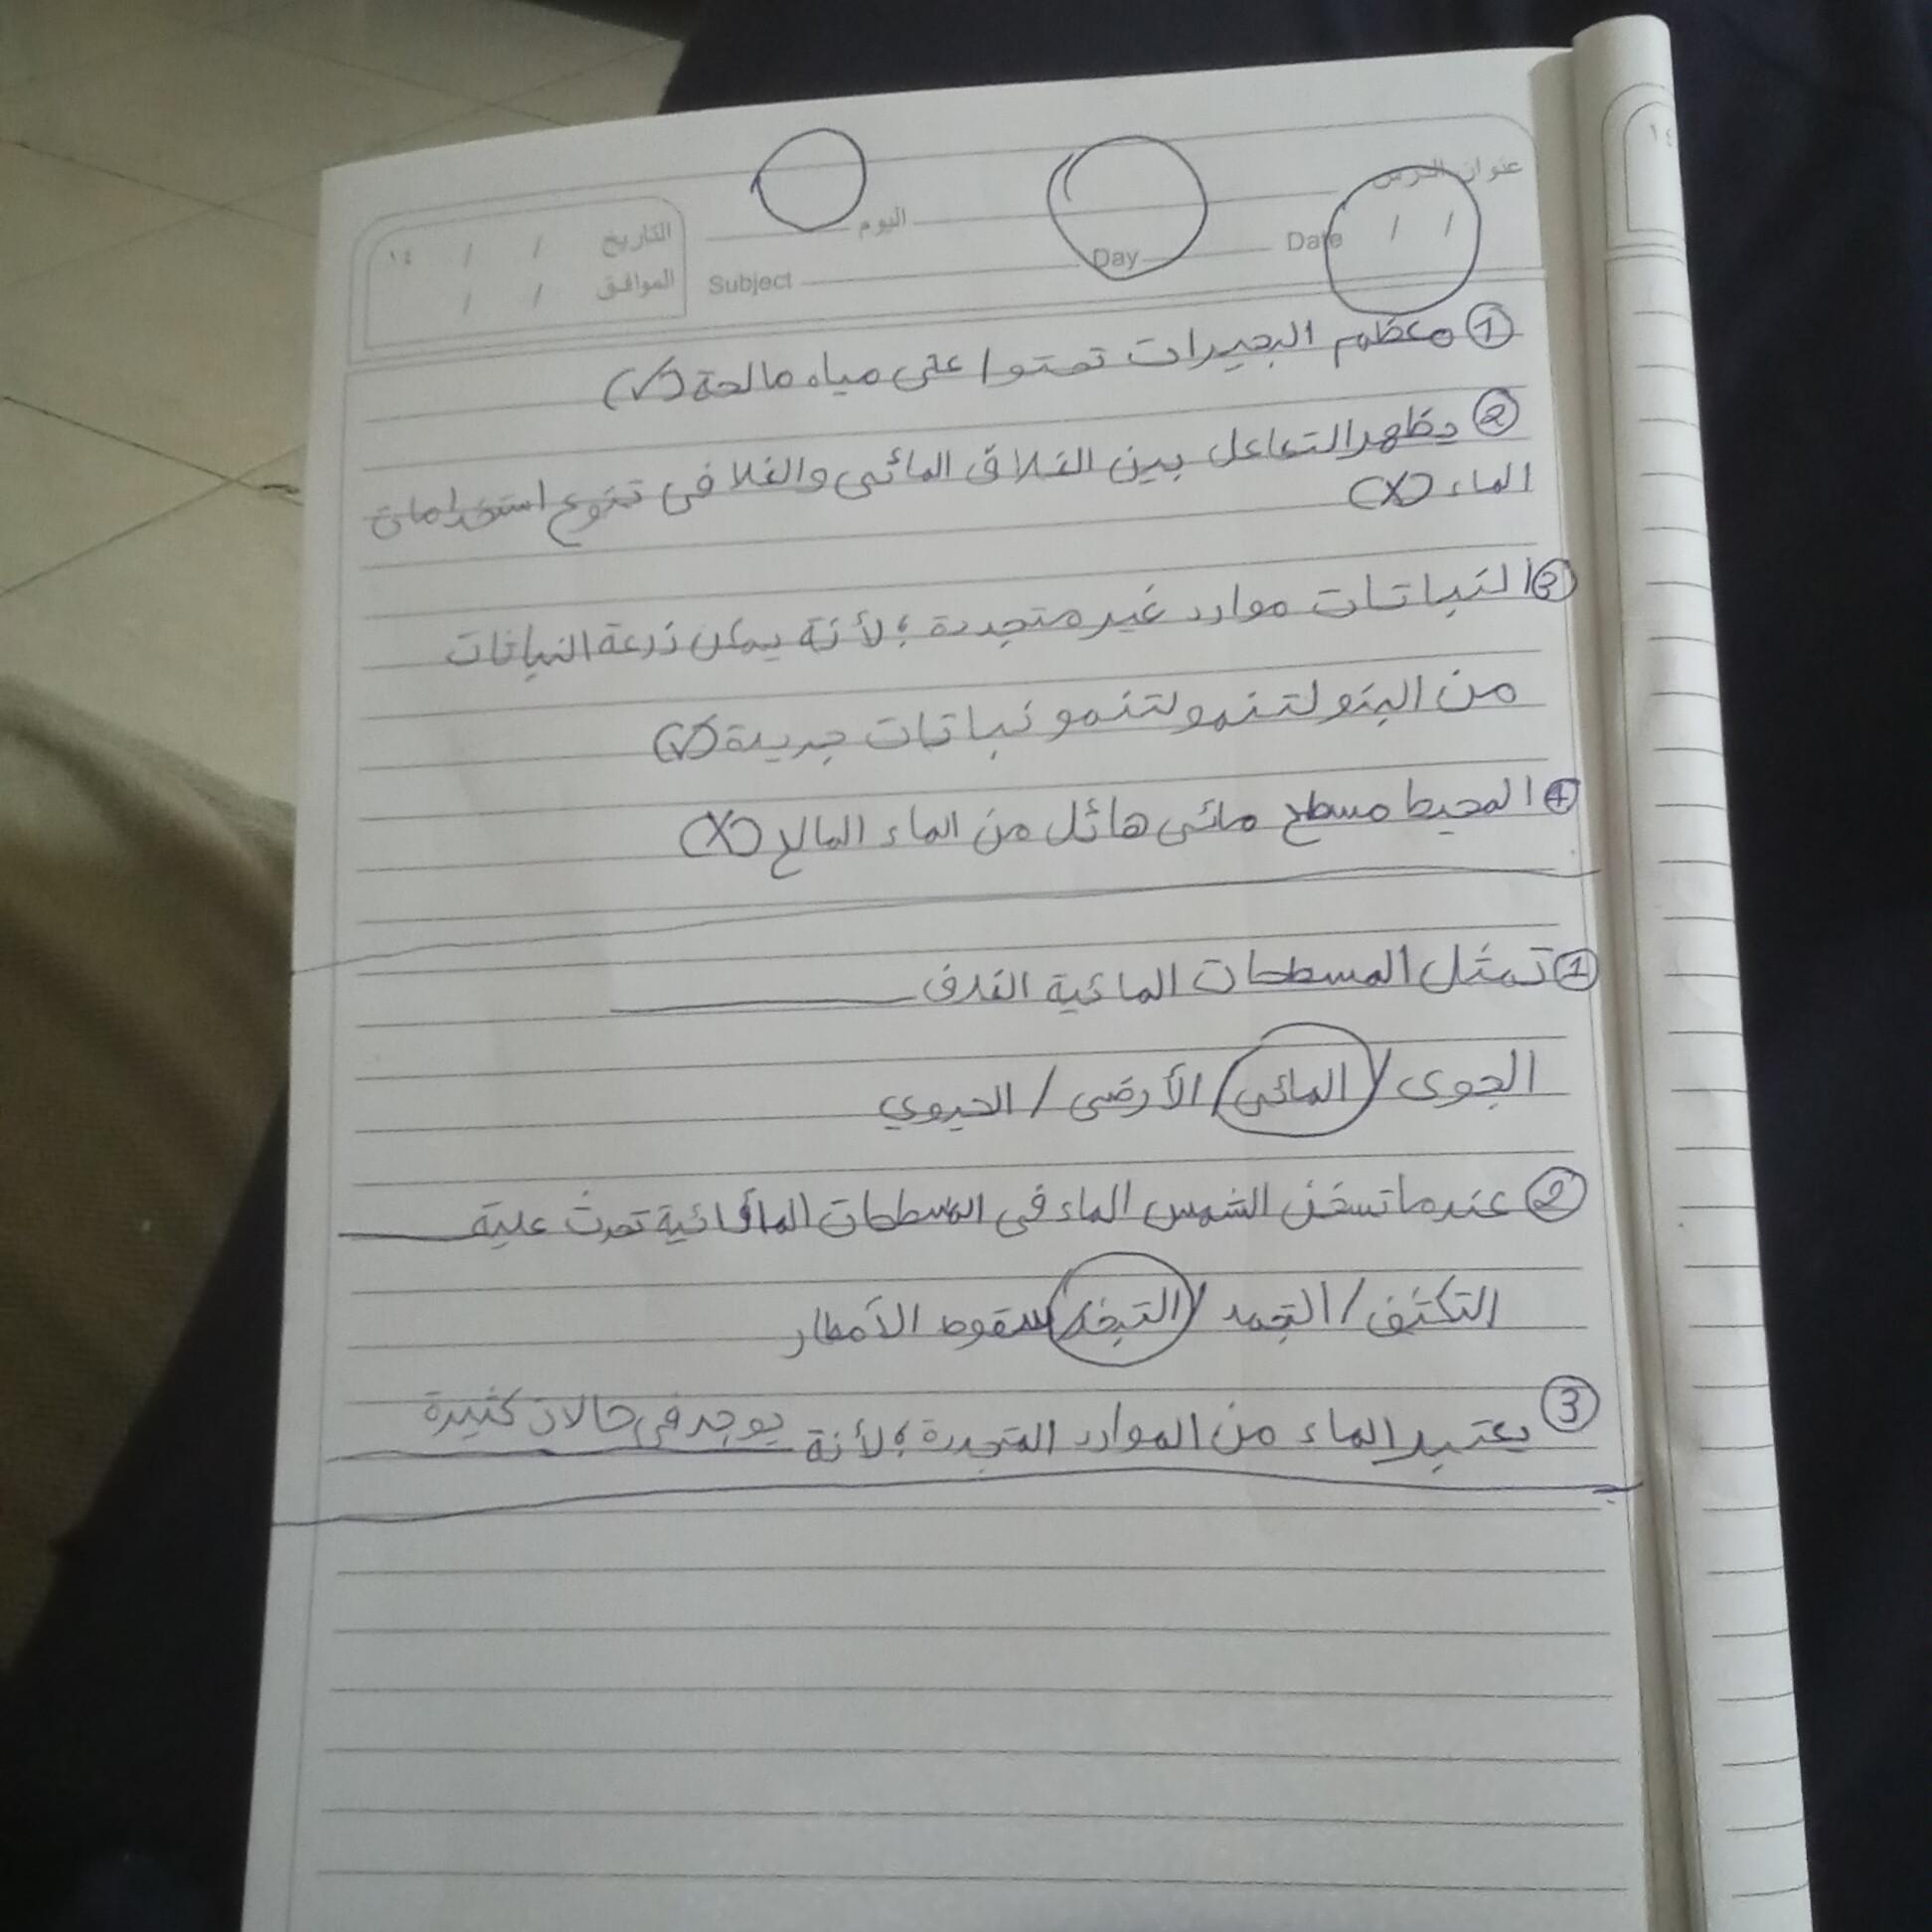 عنوان الدرس
اليوم
التاريخ / / ١٤
الموافق / /
Date / /
Day
Subject
١٤
① معظم البحيرات تحتوا على مياه مالحة (✓)
② يظهر التفاعل بين الغلاق المائى والغلا فى تنوع استخدامات
الماء (X)
③ النباتات موارد غير متجددة ؛ لأنة يمكن زرعة النباتات
من البذو لتنمو لتنمو نباتات جديدة (✓)
④ المحيط مسطح مائى هائل من الماء المالح (X)
① تمثل المسطحات المائية الغلاف
الجوى / المائى / الأرضى / الحيوي
② عندما تسخن الشمس الماء فى المسطحات المائية تحدث علية
التكثف / التجمد / التبخر / سقوط الأمطار
③ يعتبر الماء من الموارد المتجددة ؛ لأنة يوجد فى حالات كثيرة